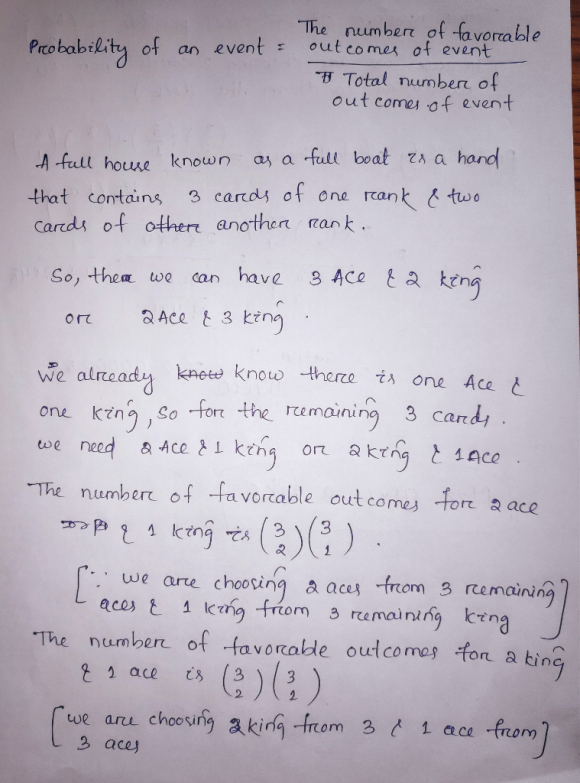 The number of favorable
Probability of an event = outcomes of event
Total number of
outcomes of event
A full house known as a full boat is a hand
that contains 3 cards of one rank & two
cards of other another rank.
So, there we can have 3 Ace & 2 king
or 2 Ace & 3 king.
We already know know there is one Ace &
one king, so for the remaining 3 cards.
we need 2 Ace & 1 king or 2 king & 1 Ace.
The number of favorable outcomes for 2 ace
& 1 king is (3 2) (3 1).
[∵ we are choosing 2 aces from 3 remaining
aces & 1 king from 3 remaining king]
The number of favorable outcomes for 2 king
& 1 ace is (3 2) (3 1)
[we are choosing 2 king from 3 & 1 ace from
3 aces]